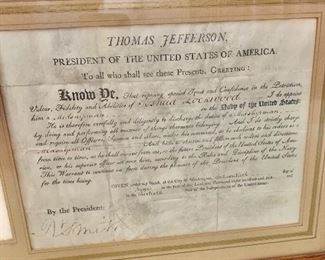 THOMAS JEFFERSON,
PRESIDENT OF THE UNITED STATES OF AMERICA.
To all who shall see these Presents, GREETING:
KNOW YE, That reposing special Trust and Confidence in the Patriotism,
Valour, Fidelity and Abilities of Joshua Lockwood I do appoint
him a Midshipman in the Navy of the United States:
He is therefore carefully and diligently to discharge the duties of a Midshipman
by doing and performing all manner of things thereunto belonging. And I do strictly charge
and require all Officers, Seamen and others, under his command, to be obedient to his orders as a
Midshipman And he is to observe and follow such orders and directions
from time to time, as he shall receive from me, or the future President of the United States of America,
or his superior officer set over him, according to the Rules and Discipline of the Navy.
This Warrant to continue in force during the pleasure of the President of the United States
for the time being.
GIVEN under my Hand, at the City of Washington, this day of
in the year of our Lord one thousand eight hundred and
and in the Thirtieth Year of the Independence of the United States.
By the President:
Rt Smith